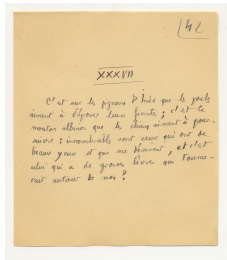 42
XXXVII
C'est sur les pignons d'Inde que les poils
aiment à déposer leur fiente ; c'est le
mouton albinos que les chiens aiment à pour-
suivre : innombrables sont ceux qui ont de
beaux yeux et qui me désirent, et c'est
celui qui a de grosses lèvres qui tourne-
rait autour de moi ?